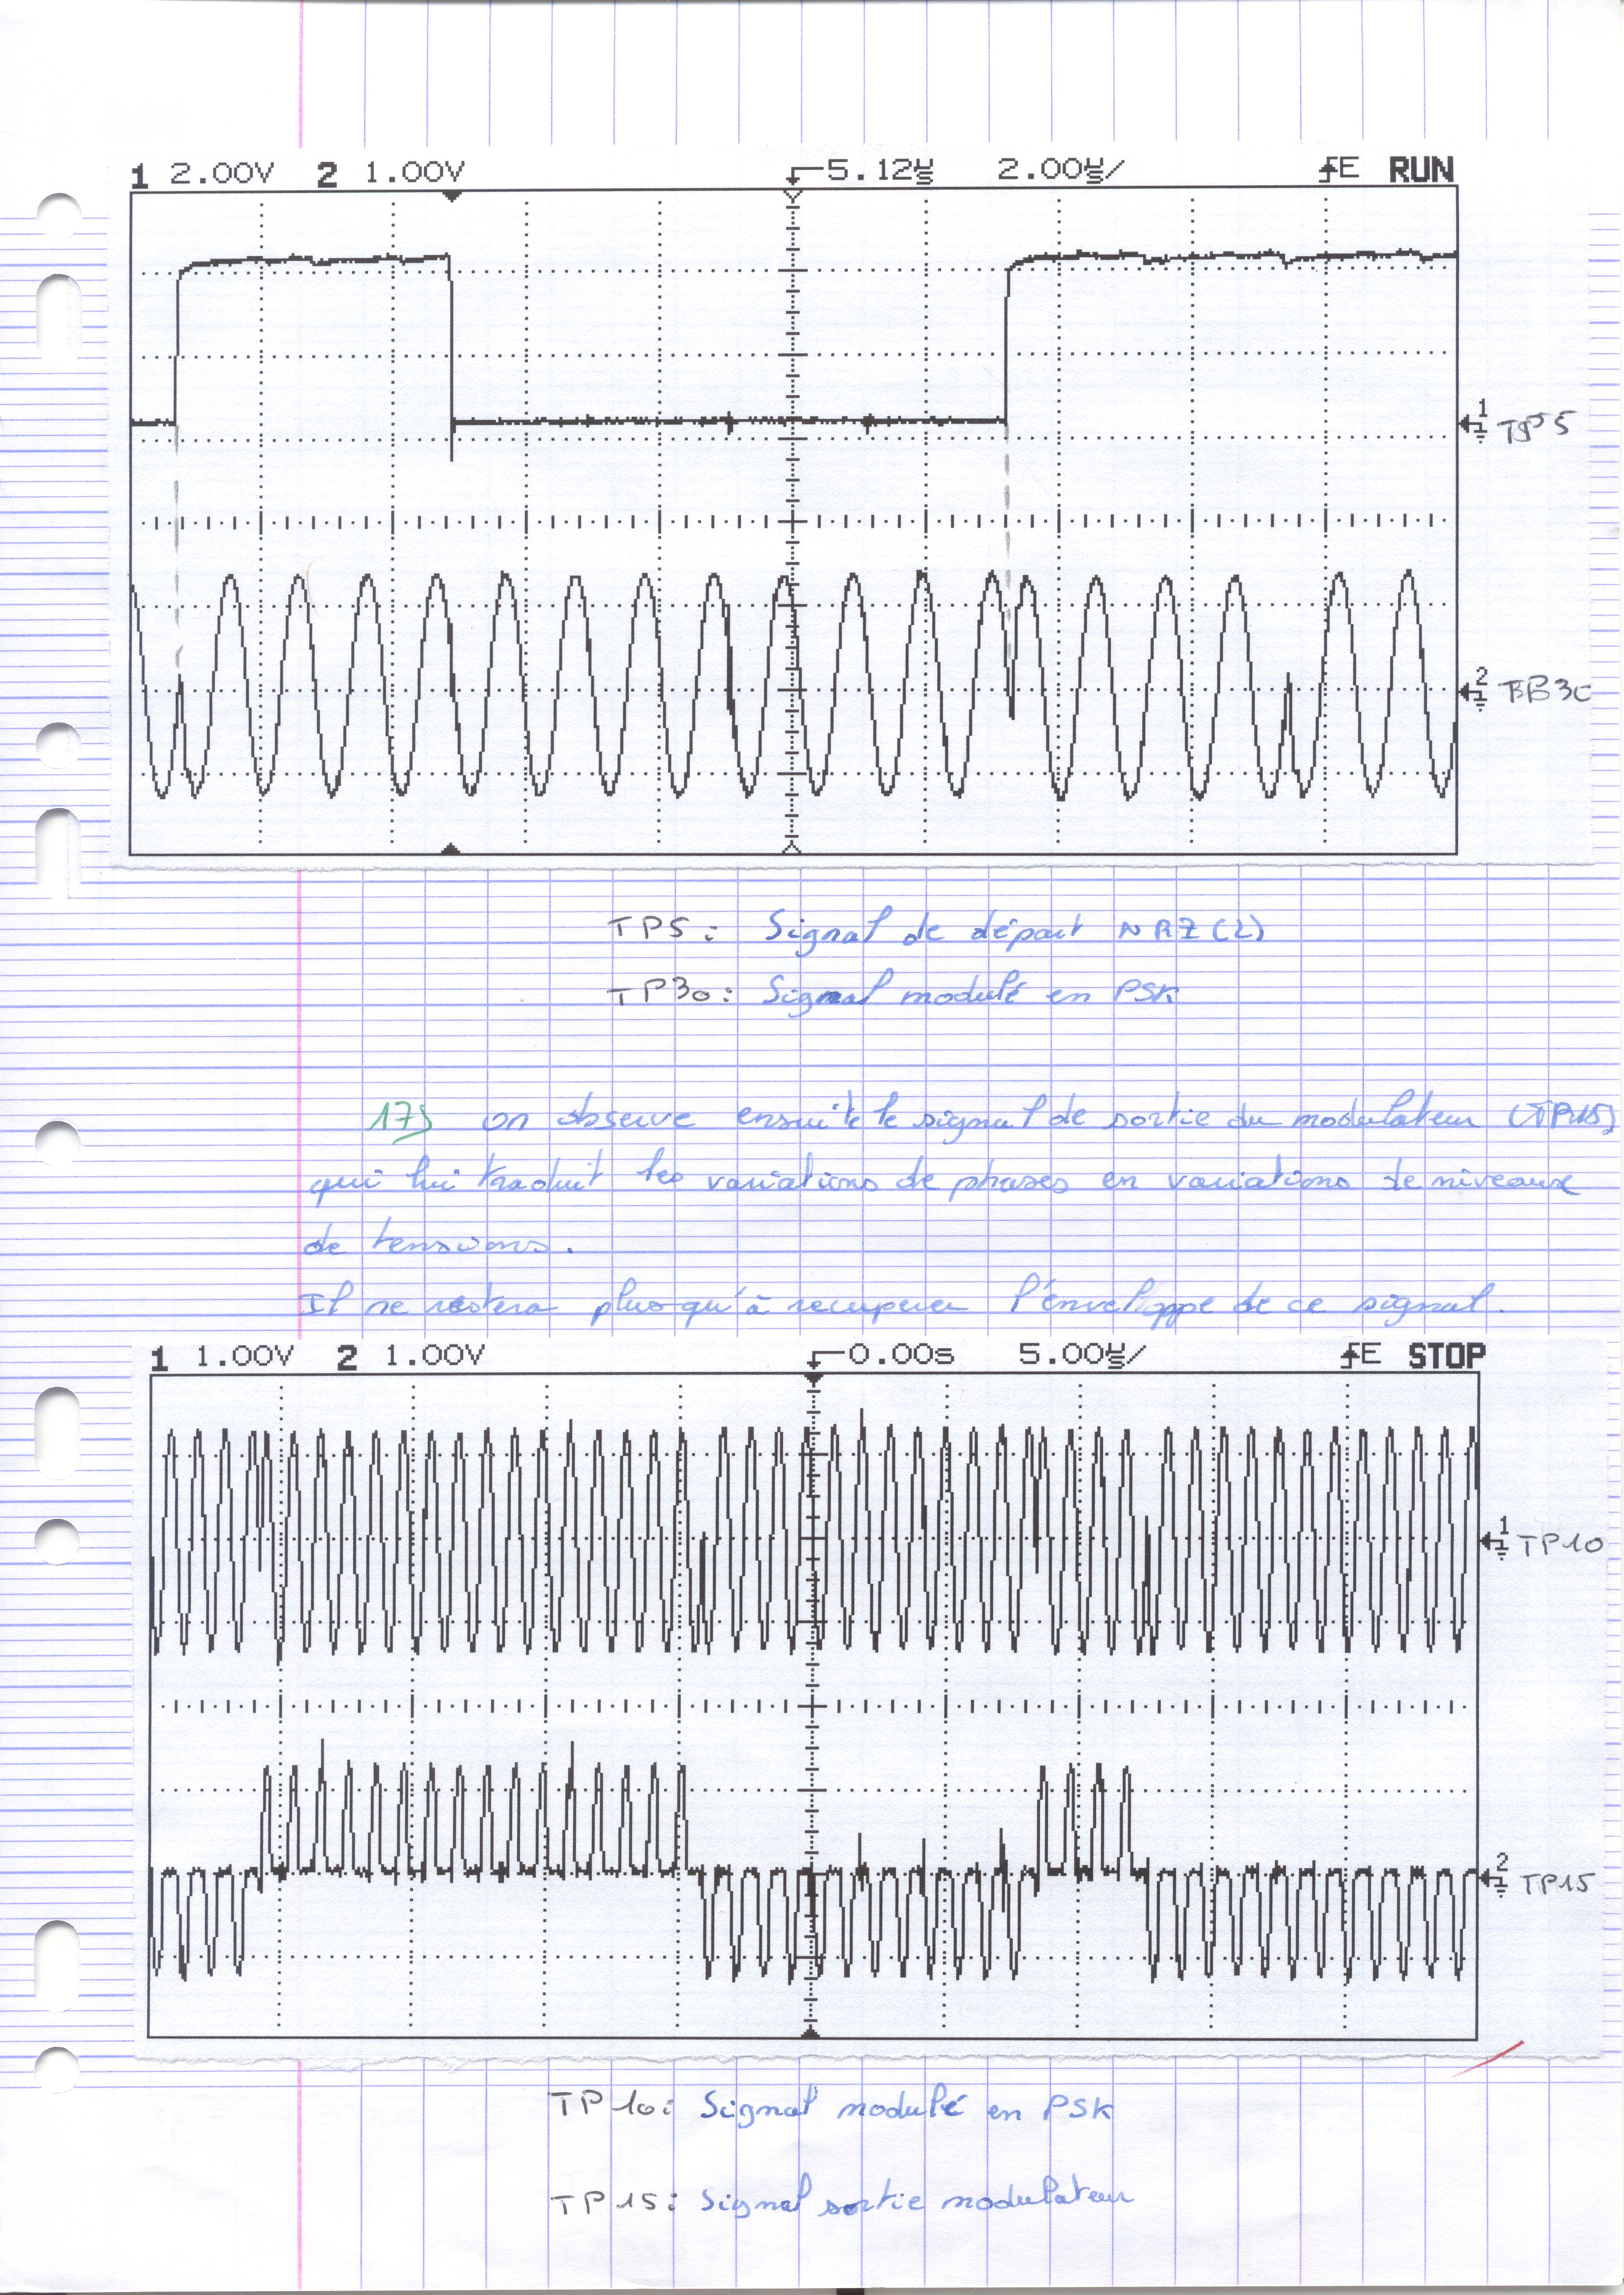 1 2.00V 2 1.00V 5.12µs 2.00µs/ E RUN
1 TP5
2
TP5 : Signal de départ NRZ (L)
TP30 : Signal modulé en PSK
17) on observe ensuite le signal de sortie du modulateur (TP15)
qui lui traduit les variations de phases en variations de niveaux
de tensions.
Il ne restera plus qu'à recuperer l'enveloppe de ce signal.
1 1.00V 2 1.00V 0.00s 5.00µs/ E STOP
1 TP10
2 TP15
TP10 : Signal modulé en PSK
TP15 : Signal sortie modulateur